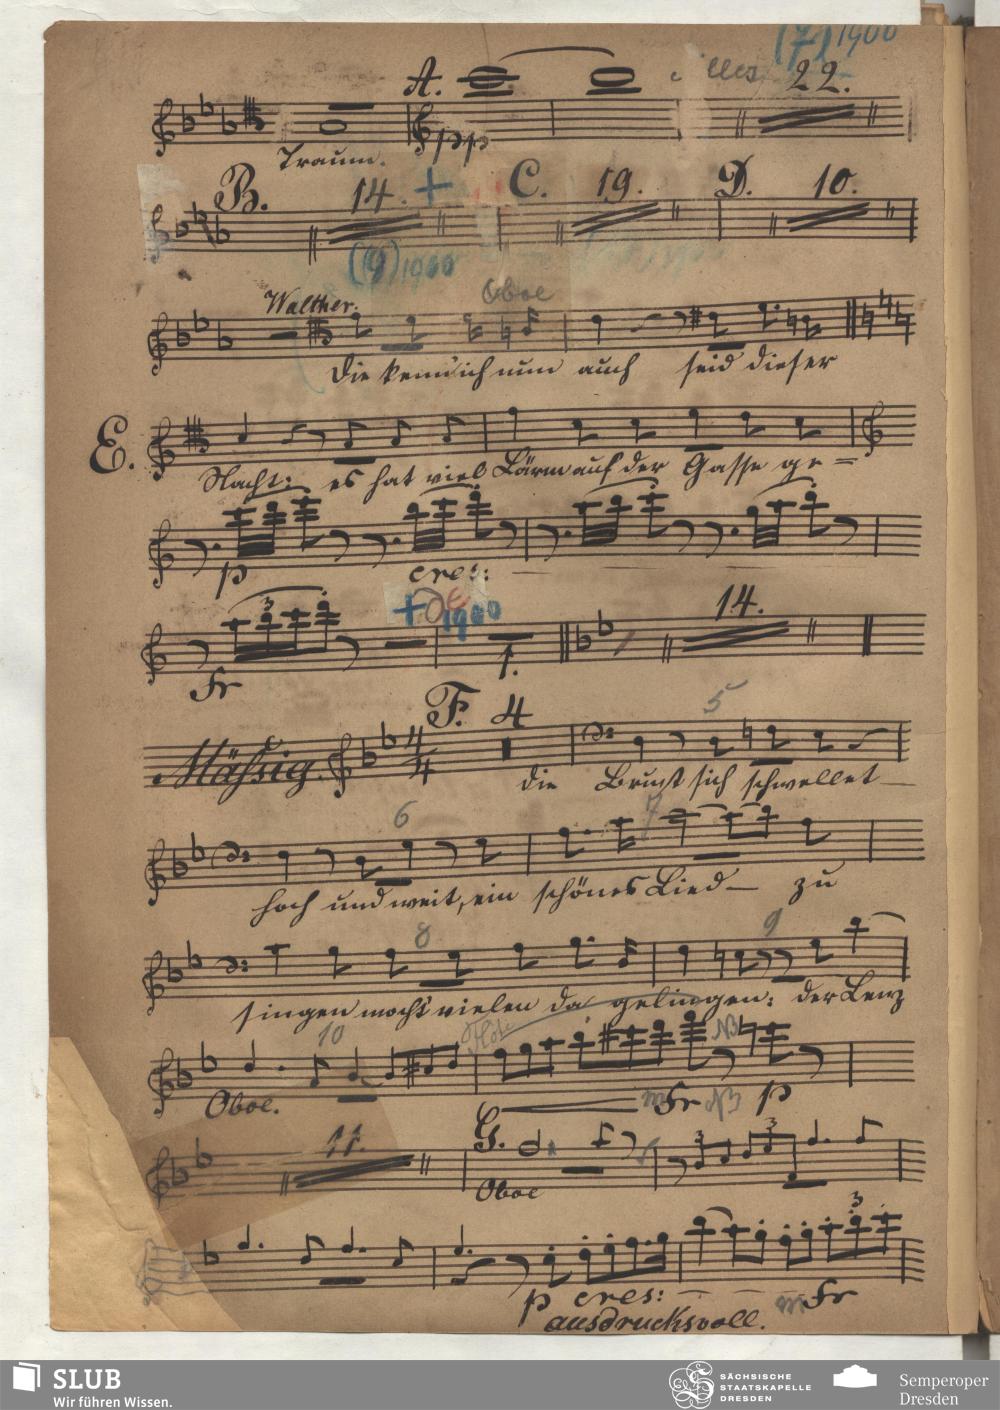 (7) 1900
A. 22.
pp
Traum.
B. 14. + C. 19. D. 10.
(9) 1900
Walther. Oboe
die kenn ich nun auch seid dieser
E.
Nacht: es hat viel Lärm auf der Gasse ge=
p cres:
+ 1900 14.
Fr 1.
F. 4 5
Mässig. 4 4
die Brust sich schwellet
6 7
hoch und weit, ein schönes Lied zu
8 9
singen mocht vielen da gelingen: der Lenz
10
Oboe. mFr p
11. G. 3 3
Oboe
3
p cres: mFr
ausdrucksvoll.
SLUB
Wir führen Wissen.
SÄCHSISCHE
STAATSKAPELLE
DRESDEN
Semperoper
Dresden